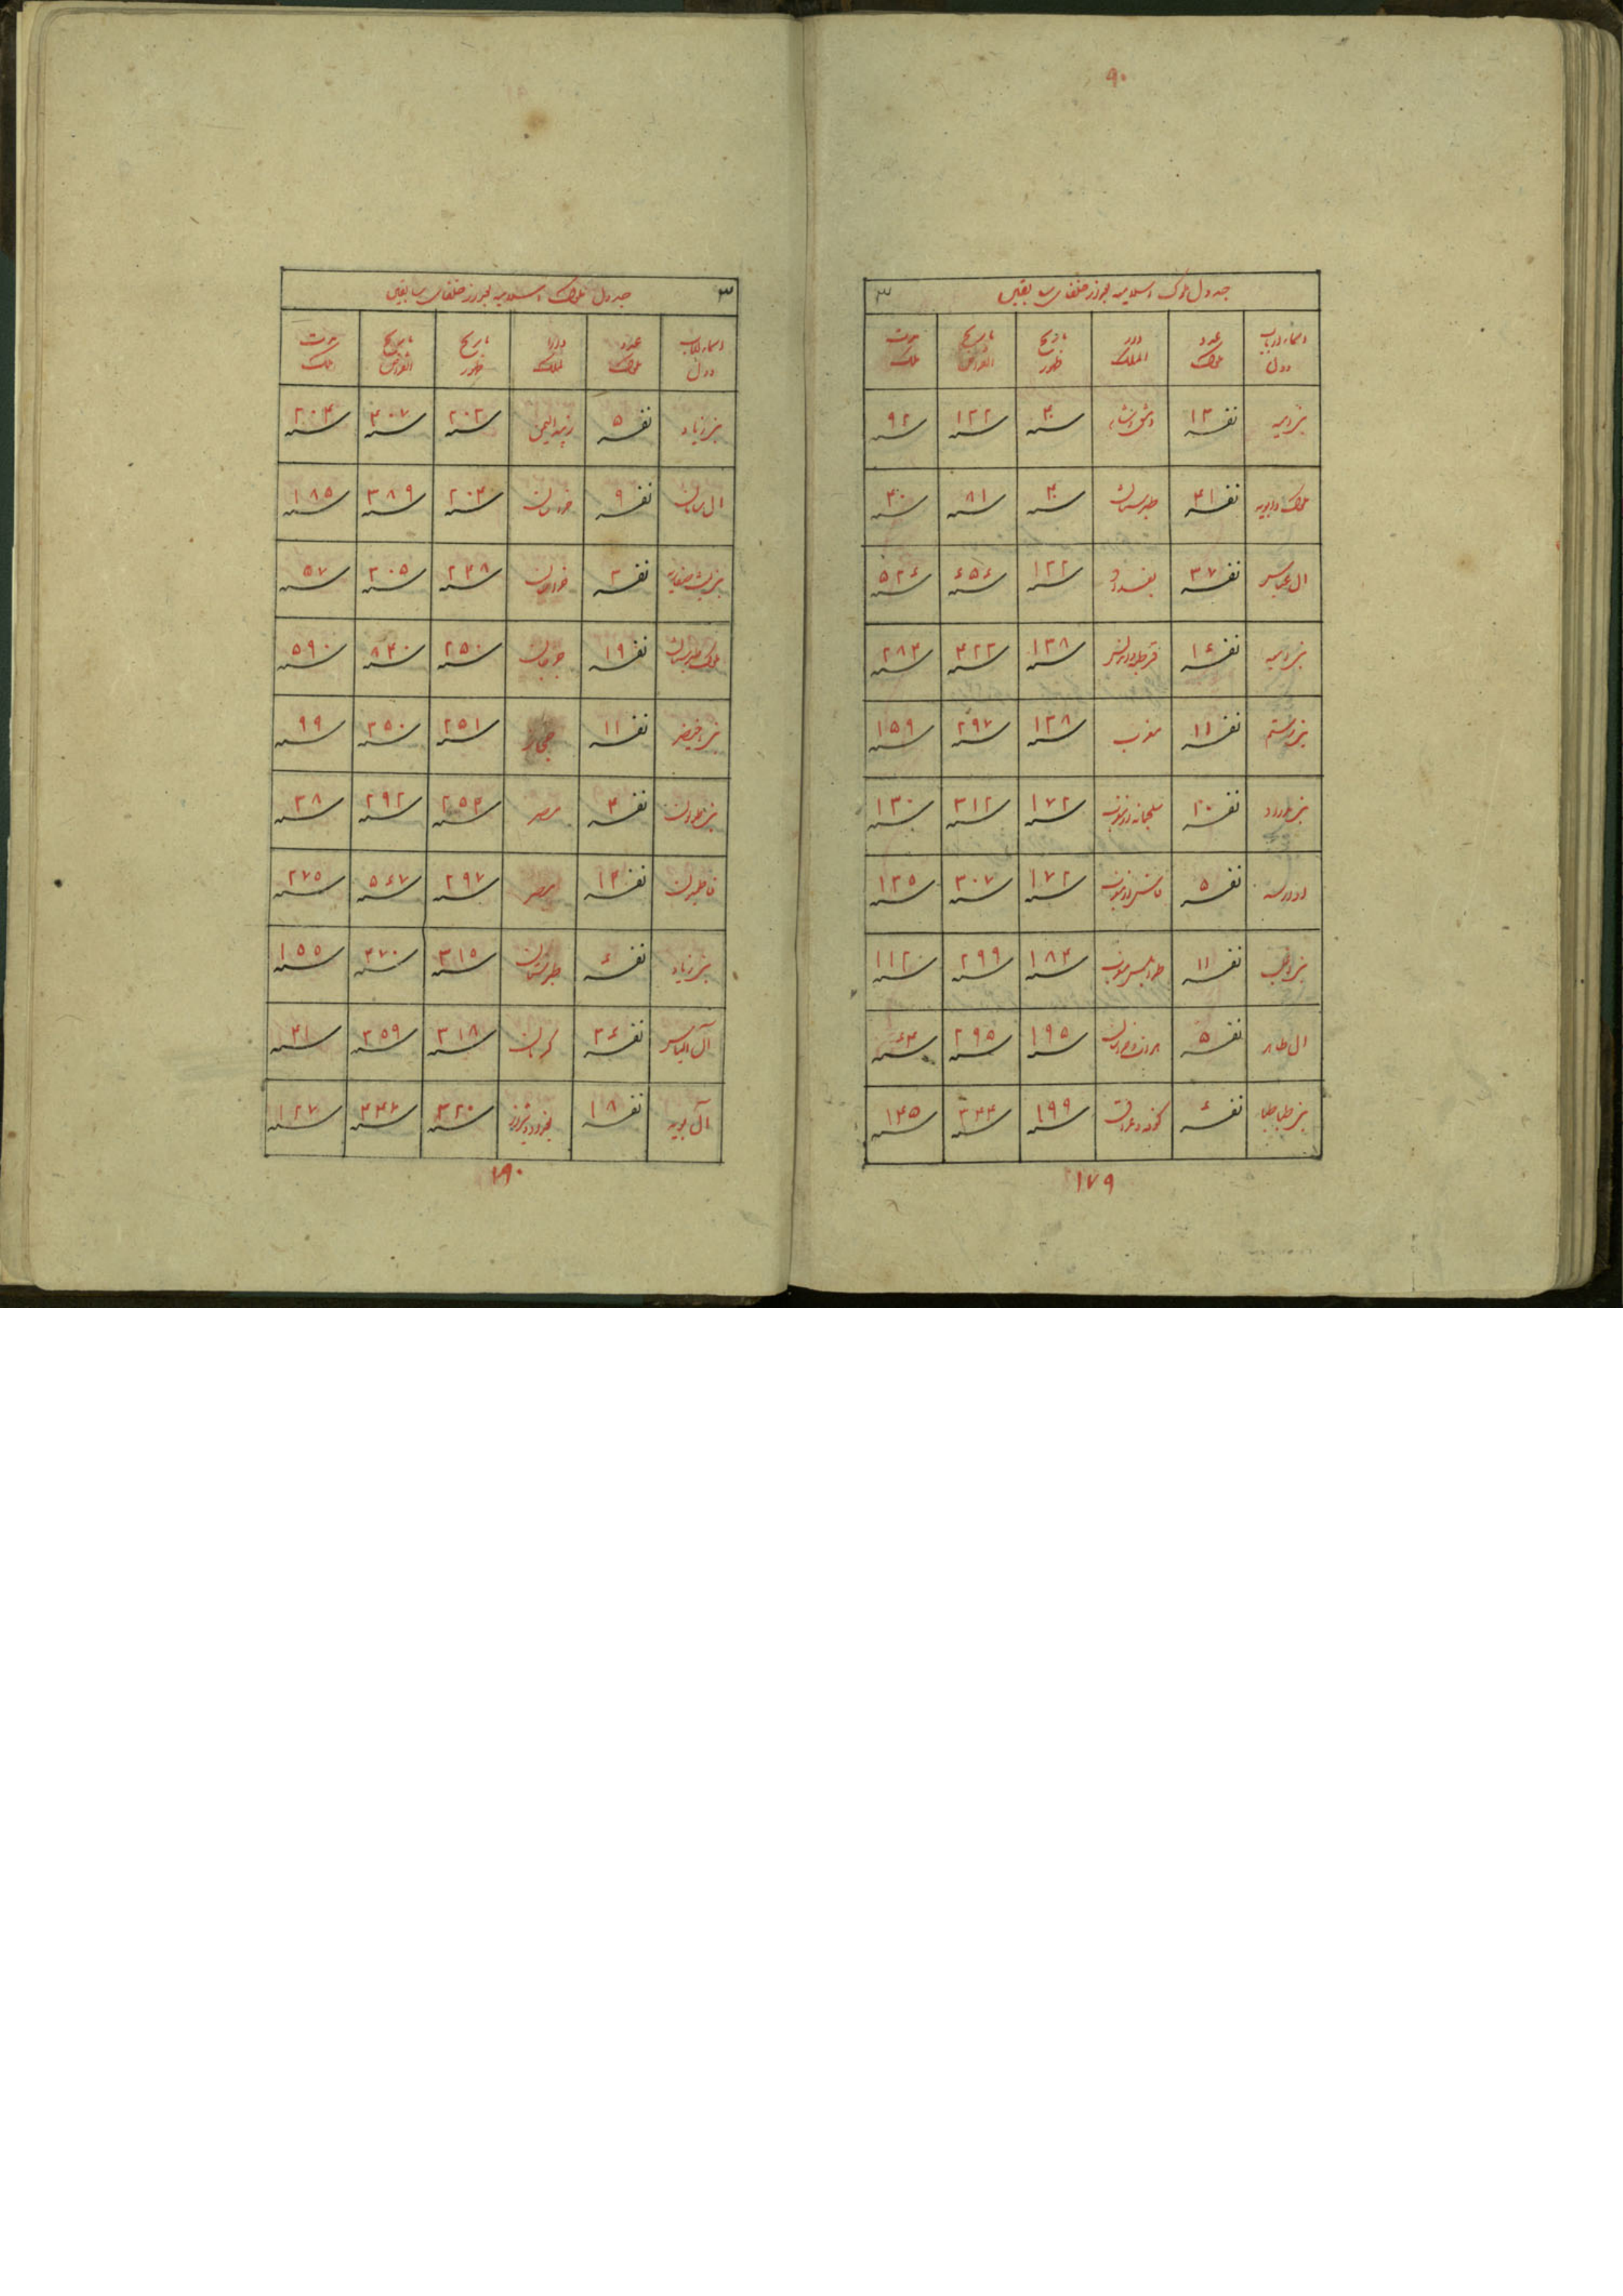 ۹۰
جدول ملوک اسلامیه بعد از خلفای سابقین ۳
اسماء ارباب دول عدد ملوک دار الملک تاریخ ظهور تاریخ انقراض مدت ملک
بنی امیه نفر ۱۴ دمشق شام سنه ۴۰ سنه ۱۳۲ سنه ۹۲
ملوک دابویه نفر طبرستان سنه ۴۰ سنه ۸۱ سنه
ال عباس نفر ۳۷ بغداد سنه ۱۳۲ سنه ۶۵۶ سنه ۵۲۴
بنی امیه نفر ۱۶ سنه ۱۳۸ سنه ۴۲۲ سنه ۲۸۴
بنی رستم نفر ۱۱ مغرب سنه ۱۳۸ سنه ۲۹۷ سنه ۱۵۹
نفر ۲۰ سنه ۱۷۲ سنه ۳۱۲ سنه ۱۴۰
ادارسه نفر ۵ سنه ۱۷۲ سنه ۳۰۷ سنه ۱۳۵
بنی اغلب نفر ۱۱ سنه ۱۸۴ سنه ۲۹۹ سنه ۱۱۲
ال طاهر نفر ۵ سنه ۱۹۵ سنه ۲۹۵ سنه
بنی طباطبا نفر ۶ کوفه و عراق سنه ۱۹۹ سنه ۳۴۴ سنه ۱۴۵
۱۷۹
جدول ملوک اسلامیه بعد از خلفای سابقین ۳
اسماء ارباب دول عدد ملوک دار الملک تاریخ ظهور تاریخ انقراض مدت ملک
بنی زیاد نفر ۵ زبید الیمن سنه ۲۰۳ سنه ۴۰۷ سنه ۲۰۴
ال سامان نفر ۹ خراسان سنه ۲۰۴ سنه ۳۸۹ سنه ۱۸۵
بنی لیث صفاریه نفر ۳ خراسان سنه ۲۴۸ سنه ۳۰۵ سنه ۵۷
ملوک طبرستان نفر ۱۹ جرجان سنه ۲۵۰ سنه ۸۴۰ سنه ۵۹۰
بنی اخیضر نفر ۱۱ حجاز سنه ۲۵۱ سنه ۳۵۰ سنه ۹۹
بنی طولون نفر ۴ مصر سنه ۲۵۴ سنه ۲۹۲ سنه ۳۸
فاطمیون نفر ۱۴ مصر سنه ۲۹۷ سنه ۵۶۷ سنه ۲۷۵
بنی زیاد نفر ۶ طبرستان سنه ۳۱۵ سنه ۴۷۰ سنه ۱۵۵
آل الیاس نفر کرمان سنه ۳۱۸ سنه ۳۵۹ سنه ۴۱
آل بویه نفر ۱۸ سنه ۳۲۰ سنه ۴۴۷ سنه ۱۲۷